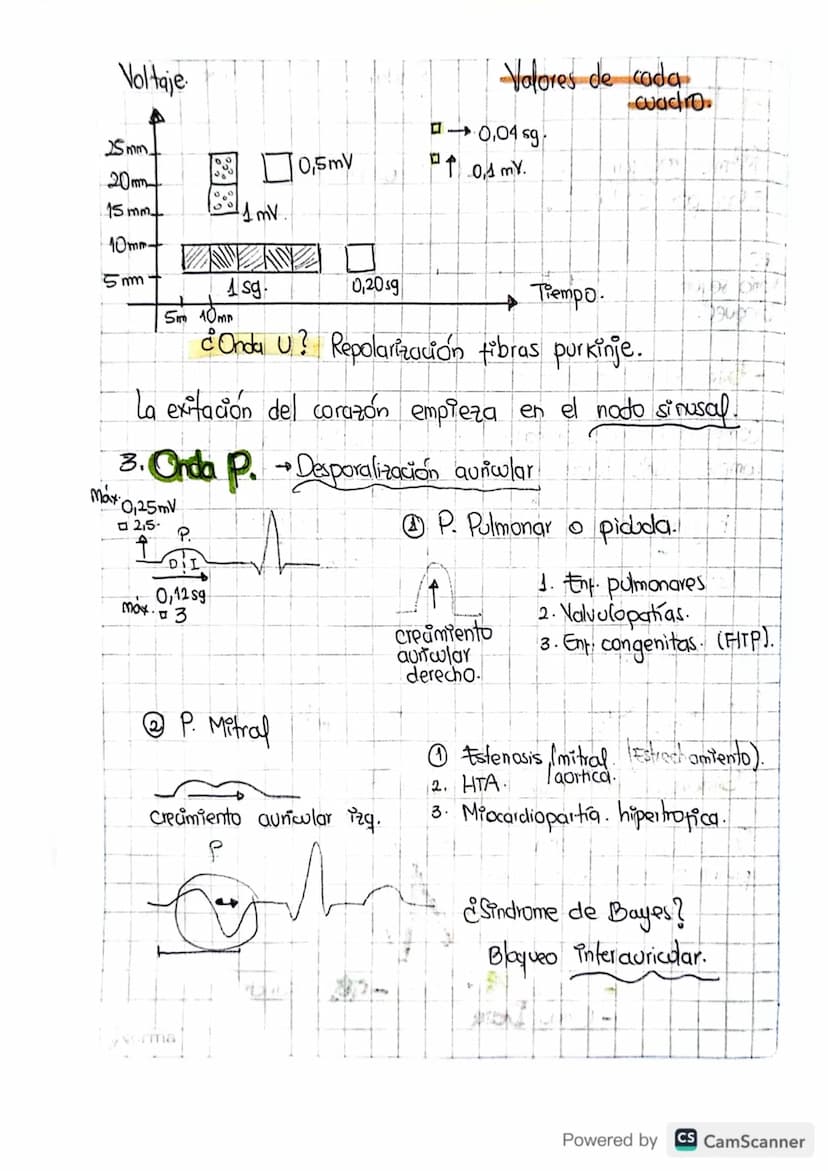 Voltaje.
Valores de cada
cuadro.
25mm
20mm
15mm
10mm
5mm
0,5mV
1mV.
→ 0,04 sg.
↑ 0,1 mV.
1 sg.
0,20sg
Tiempo.
5m 10mm
¿Onda U? Repolarización fibras purkinje.
La exitación del corazón empieza en el nodo sinusal.
3. Onda P. → Desporalización auricular
máx. 0,25mV
2,5.
P.
D I
0,12sg
máx. 3
① P. Pulmonar o picuda.
crecimiento
auricular
derecho.
1. Enf. pulmonares
2. Valvulopatías.
3. Enf. congenitas. (FHTP).
② P. Mitral
crecimiento auricular izq.
① Estenosis / mitral. (Estrechamiento).
/ aortica.
2. HTA.
3. Miocardiopartía. hipertrofica.
P
¿Síndrome de Bayes?
Bloqueo interauricular.
Powered by CS CamScanner